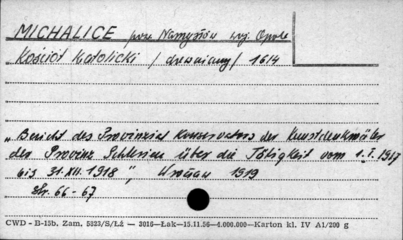 MICHALICE pow. Namysłów woj. Opole
Kościół Katolicki / drewniany / 1614
„Bericht des Provinzial Konservators der Kunstdenkmäler
der Provinz Schlesien über die Tätigkeit vom 1.I.1917
bis 31.XII.1918", Wrocław 1919
Str. 66-67
CWD - B-15b. Zam. 5323/S/Łż — 3016—Łak—15.11.56—4.000.000—Karton kl. IV A1/200 g